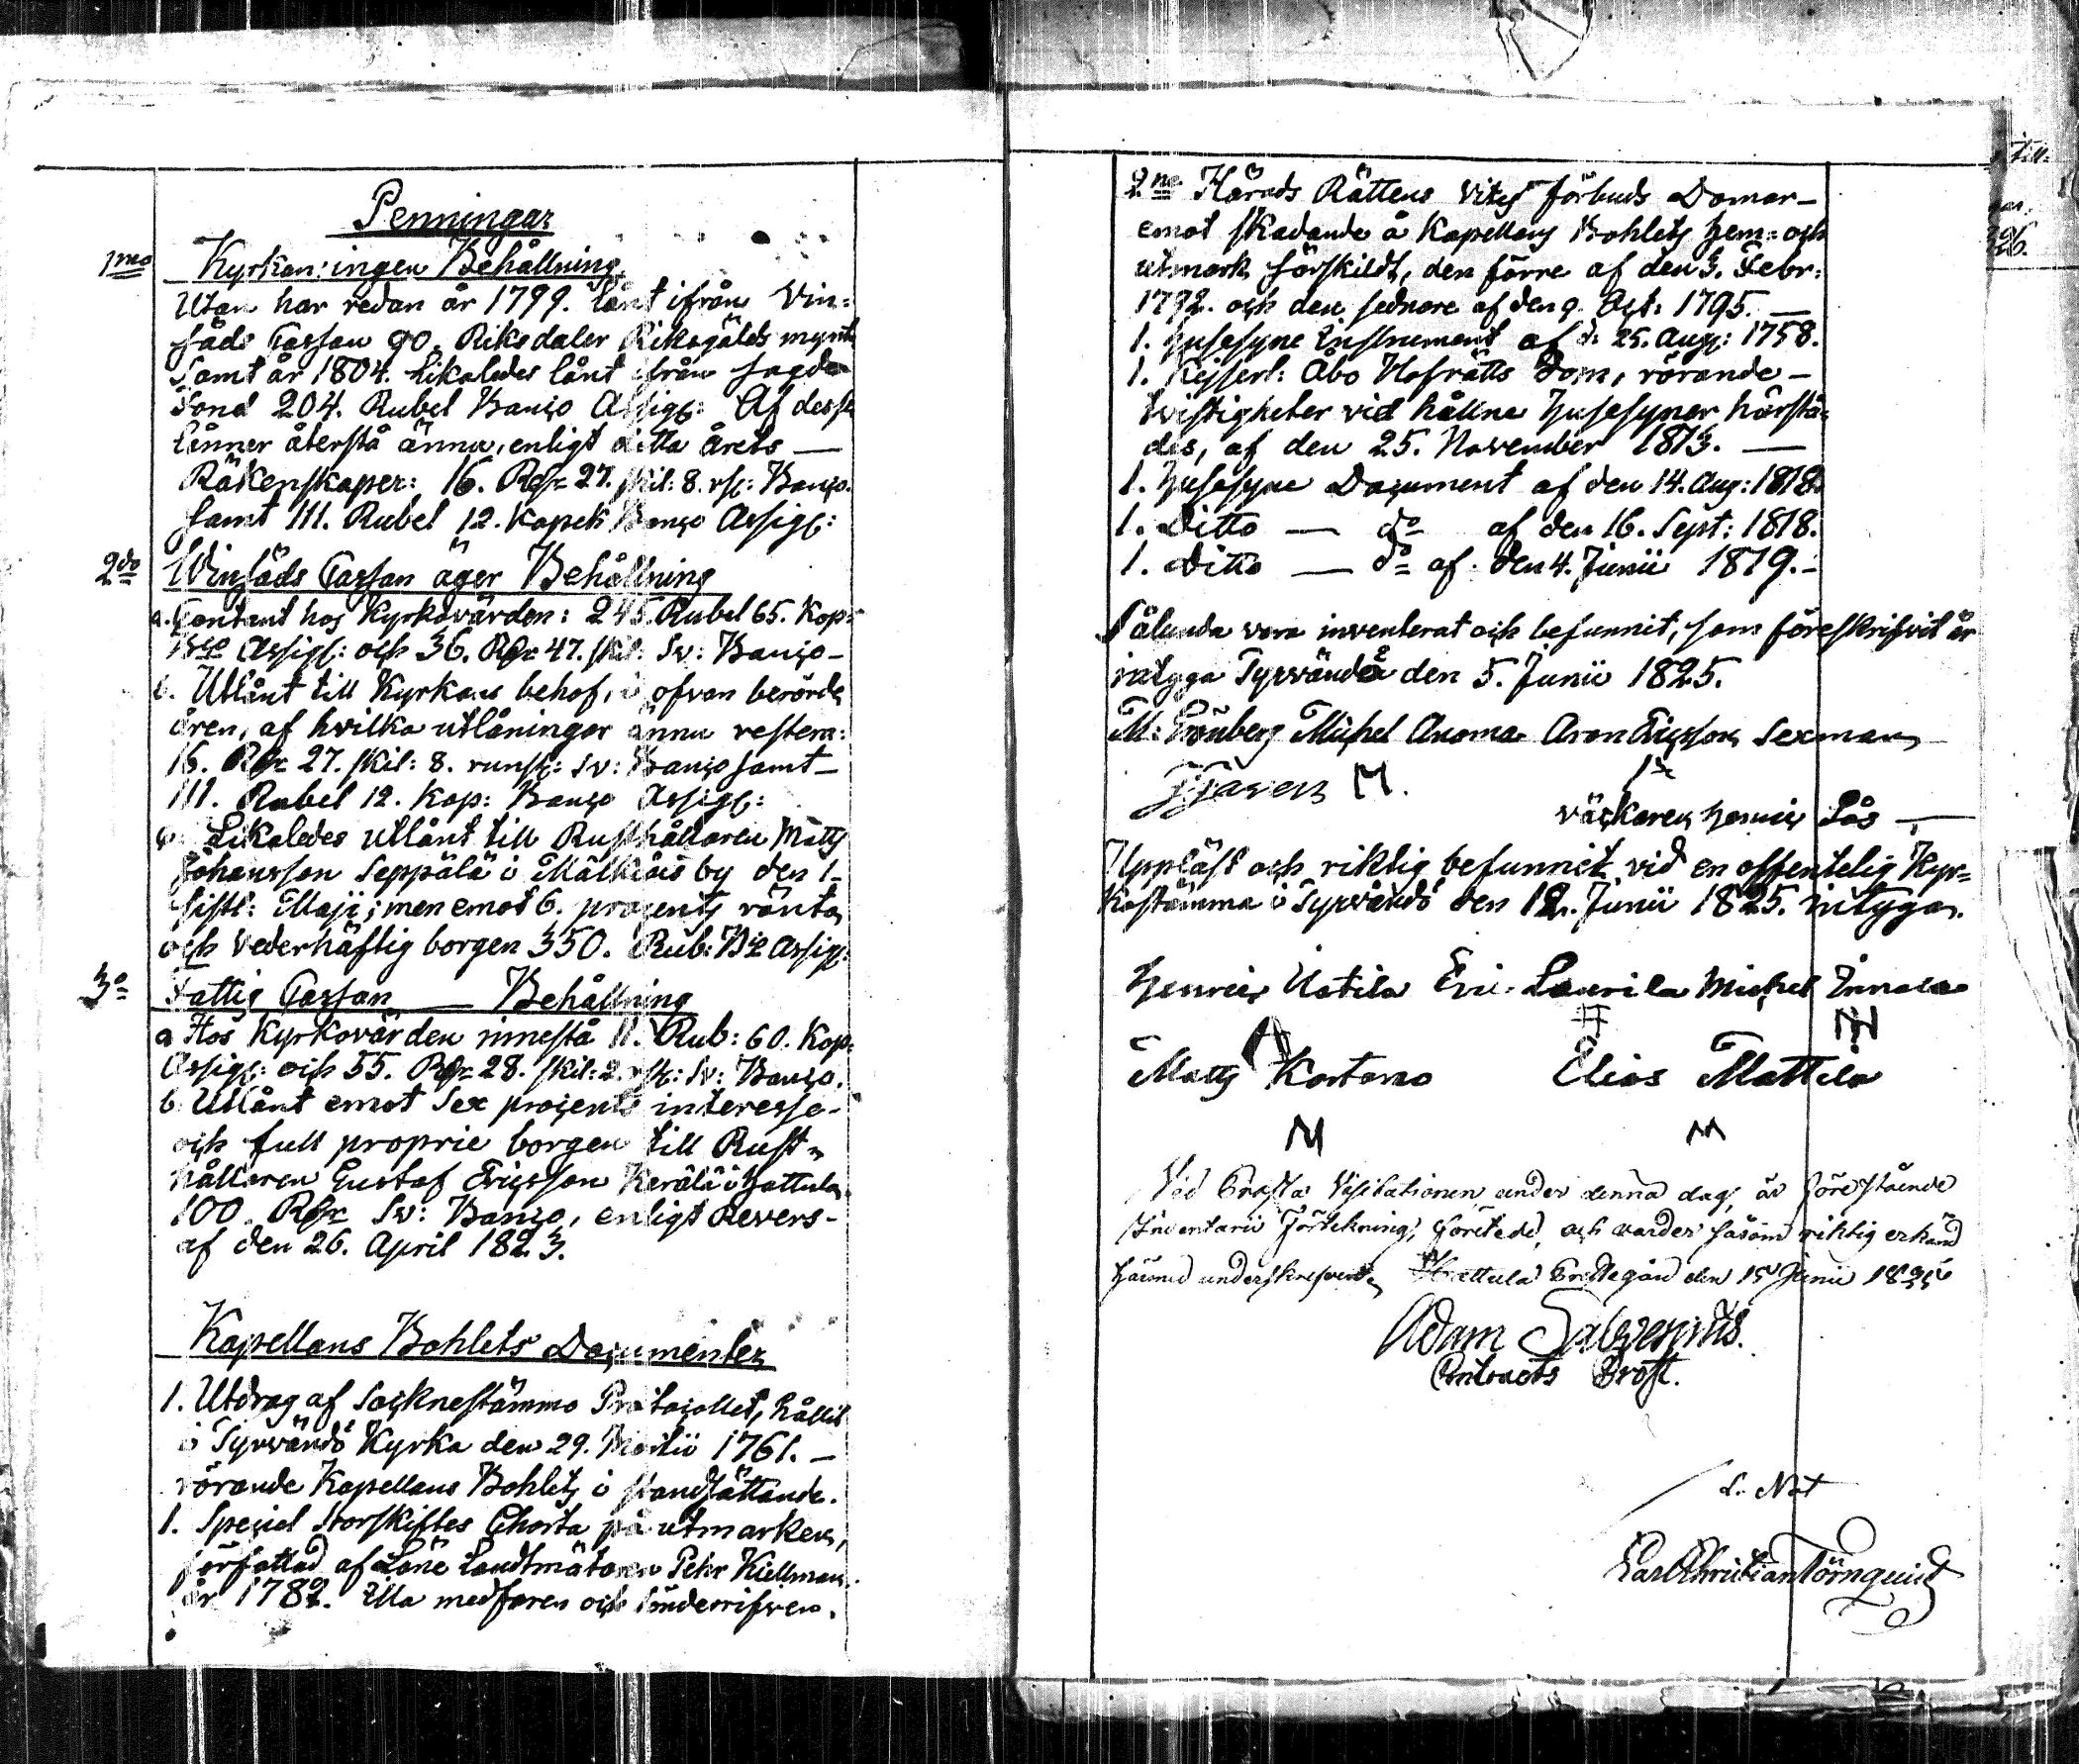 Penningar
1mo Kyrkan: ingen Behållning
Utan har redan år 1799. lånt ifrån Vin=
säds Cassan 90. Riksdaler Riksgälds mynt
Samt år 1804. likaledes lånt ifrån sagde
Fond 204. Rubel Banco Assigf: Af desse
lånner återstå ännu, enligt detta årets —
Räkenskaper: 16. Rdr 27. skil: 8. rsf: Banco.
samt 111. Rubel 12. Kopek Banco Assigf:
2do Winsäds Cassan äger Behållning
a. Contant hos Kyrkovärden: 245. Rubel 65. Kop:
Bco Assigf: och 36. Rdr 47. skil: Sv: Banco -
b. Utlånt till Kyrkans behof, i ofvan berörde
åren, af hvilka utlåningar ännu restera:
16. Rdr 27. skil: 8. runst: Sv: Banco samt -
111. Rubel 12. Kop: Banco Assigf:
c. Likaledes utlånt till Rusthållaren Matts
Johansson Seppälä i Mälkiäis by den 1-
sistl: Maji; men emot 6. procents ränta
och vederhäftig borgen 350. Rub: Bco Assigf:
3o Fattig Cassan — Behållning
a Hos Kyrkovärden innestå 11. Rub: 60. Kop:
Assigf: och 55. Rdr 28. skil: 2. rst: Sv: Banco.
b. Utlånt emot Sex procents interesse-
och full proprie borgen till Rust=
hållaren Gustaf Ericsson Kerälä i Hattula
100. Rdr Sv: Banco, enligt Revers-
af den 26. April 1823.
Kapellans Bohlets Documenter
1. Utdrag af Socknestämmo Protocollet, hållit
i Tyrvändö Kyrka den 29. Martii 1761. -
rörande Kapellans Bohlets i standsättande.
1. Speciel Storskiftes Charta på utmarken,
författad af Läne Landtmätaren Pehr Kiellman
år 1782. Illa medfaren och sönderrifven.
2ne Härads Rättens Vites förbuds Domar -
emot skadande å Kapellans Bohlets hem= och
utmark särskildt, den förre af den 3. Febr:
1792. och den sednare af den 9. Oct: 1795. —
1. Husesyne Instrument af d: 25. Aug: 1758.
1. Kejserl: Åbo Hofrätts Dom, rörande -
tvistigheter vid hållne Husesyner härstä=
des, af den 25. November 1813. —
1. Husesyne Document af den 14. Aug: 1818.
1. Ditto — do af den 16. Sept: 1818.
1. Ditto — do af den 4. Junii 1819. -
Sålunda vara inventerat och befunnit, som föreskrifvit är
intyga Tyrvändö den 5. Junii 1825.
M: Grönberg Michel Anoma Aron Ericsson Sexman
M.
väckaren Henric Lås —
Uppläst och riktig befunnit vid en offentelig Kyr=
kostämma i Tyrvändö den 12. Junii 1825. intygar.
Henric Uotila Eric Laurila Michel Innala
Matts Kartano Elias Mattila
Vid Prosta Visitationen under denna dag, är förestående
Inventarii Förtekning, företedd, och varder såsom riktig erkänd
härmed underskrefven, Hattula Prestegård den 15 Junii 1825
Adam Salvenius.
Contracts Prost.
L. Not
Carl Christian Törnquist